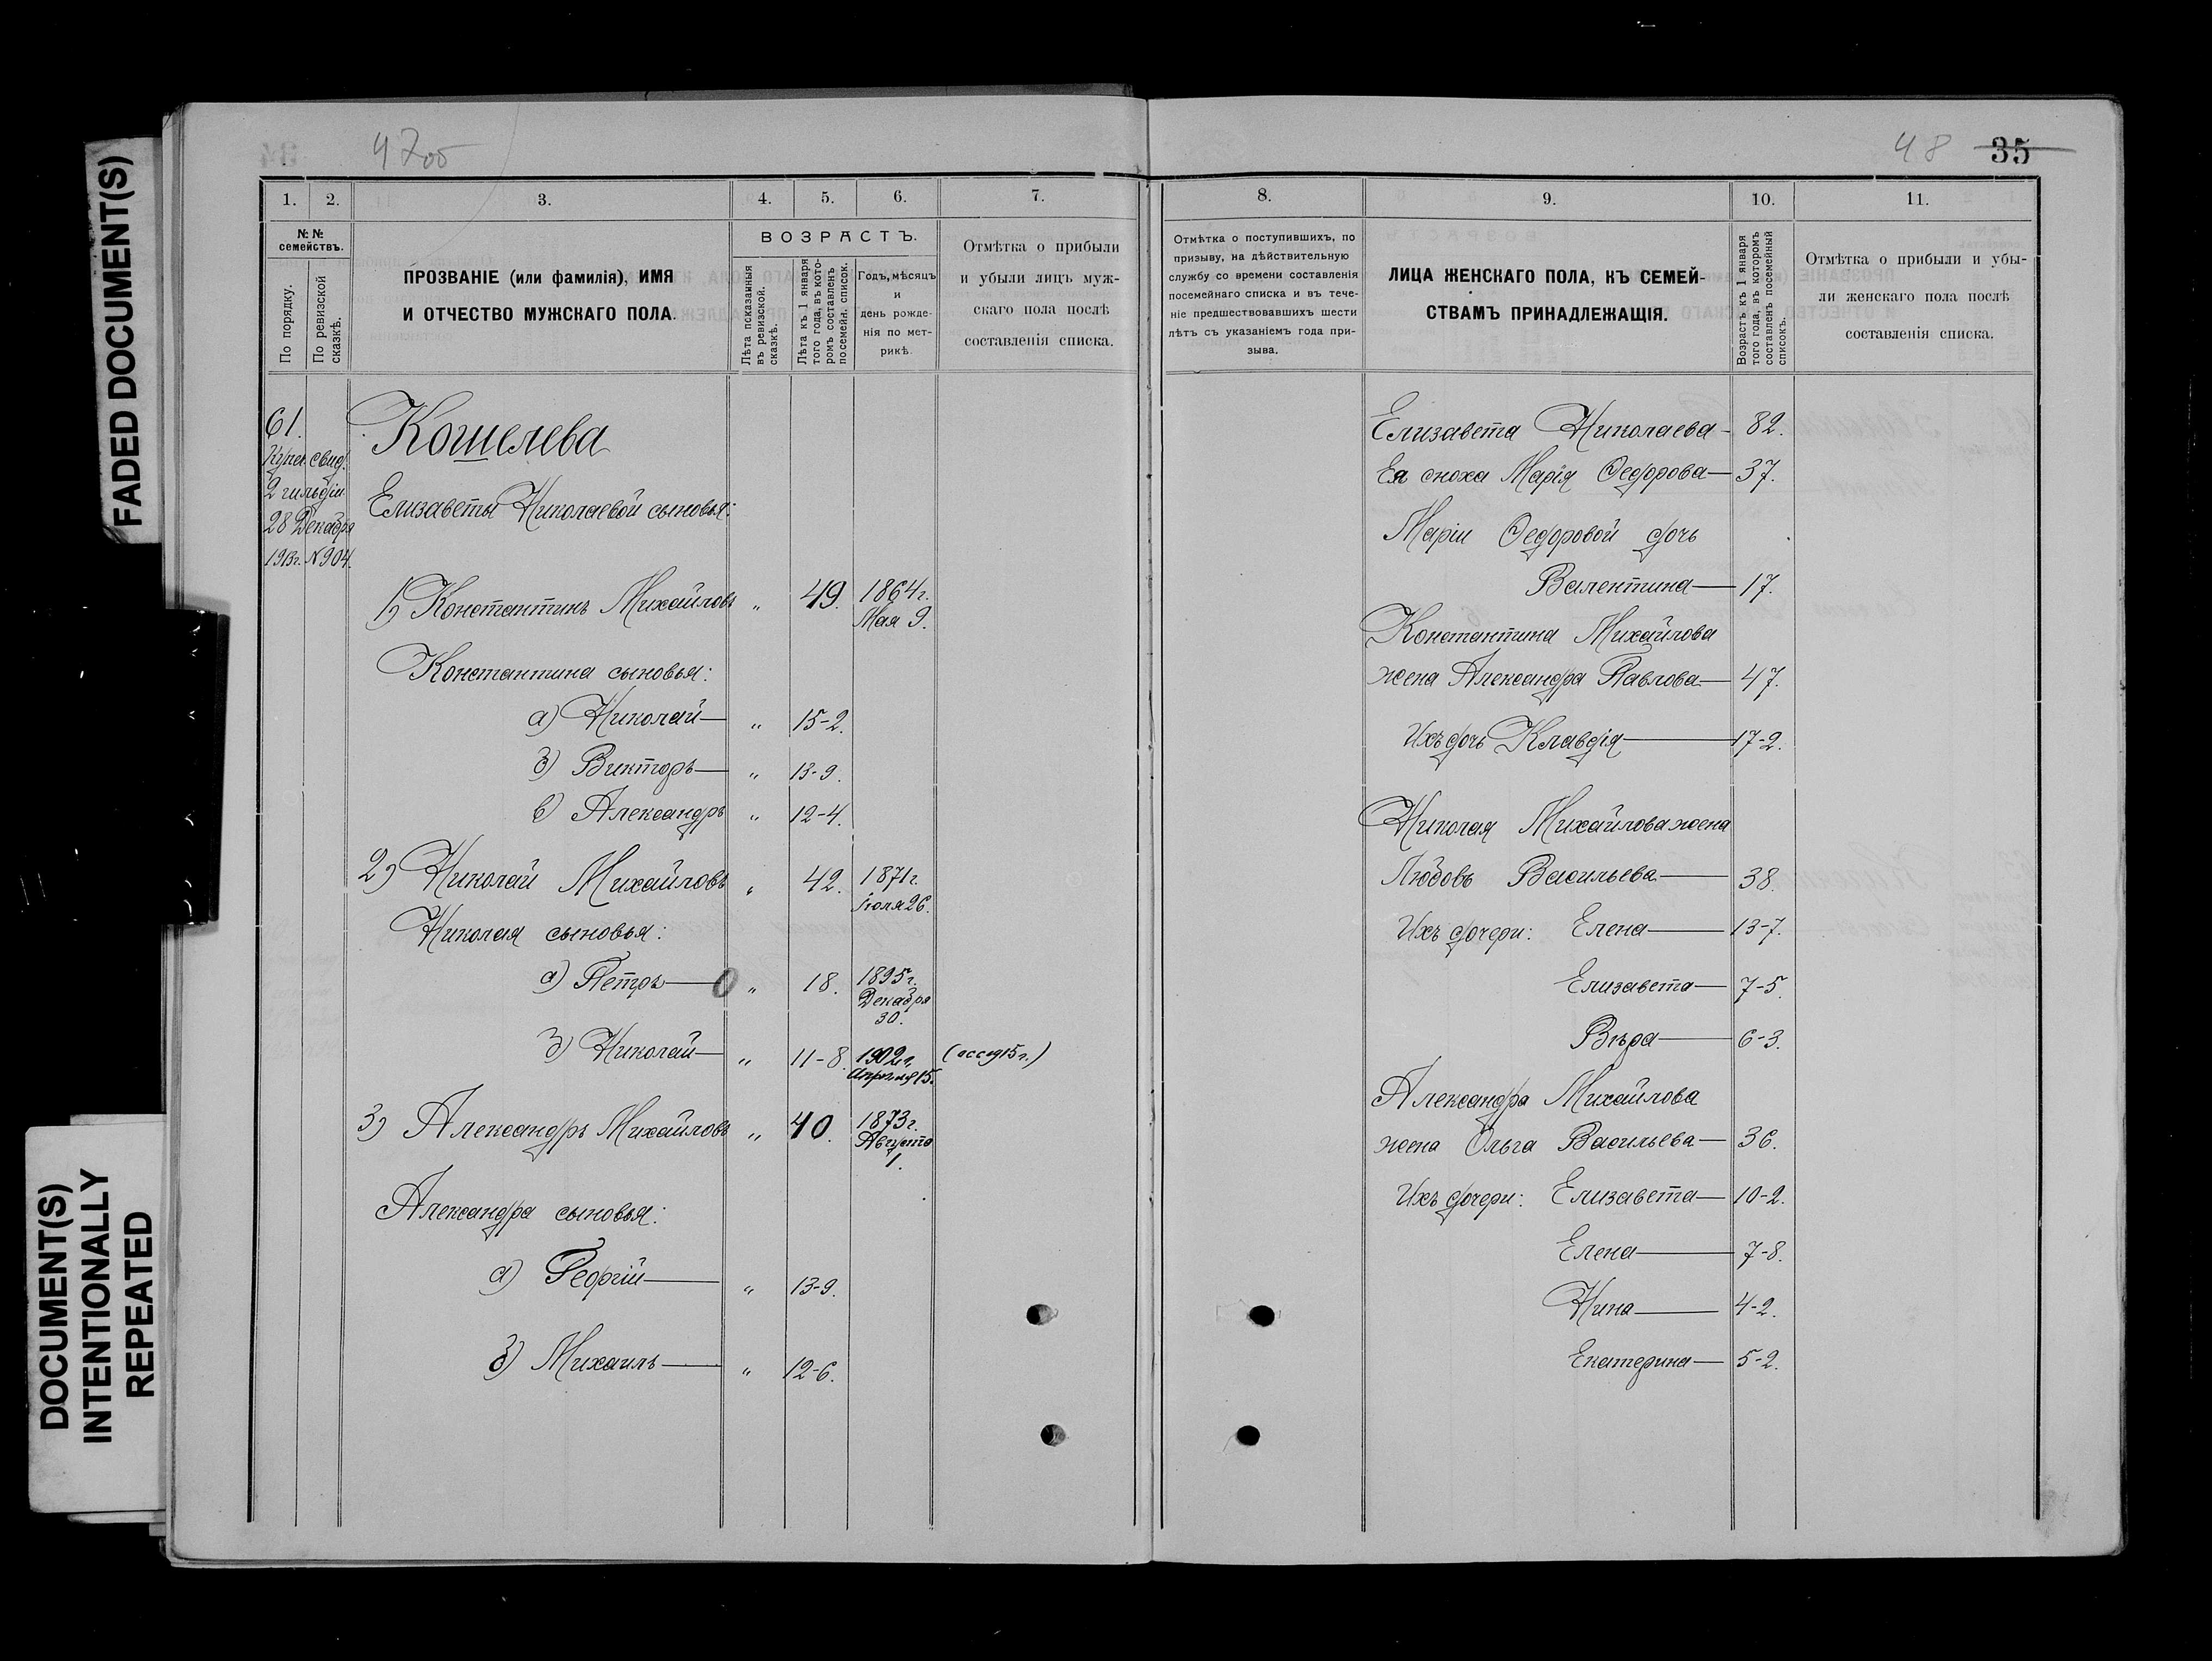 FADED DOCUMENT(S)
DOCUMENT(S)
INTENTIONALLY
REPEATED
47об
1. 2. 3. 4. 5. 6. 7.
№ №
семействъ.
По порядку.
По ревизской
сказкѣ.
ПРОЗВАНІЕ (или фамилія), ИМЯ
И ОТЧЕСТВО МУЖСКАГО ПОЛА.
ВОЗРАСТЪ.
Лѣта показанныя
въ ревизской.
сказкѣ.
Лѣта къ 1 января
того года, въ кото-
ромъ составленъ
посемейн. список.
Годъ, мѣсяцъ
и
день рожде-
нія по мет-
рикѣ.
Отмѣтка о прибыли
и убыли лицъ муж-
скаго пола послѣ
составленія списка.
61.
Купеч. свид.
2 гильдіи
28 Декабря
1913г. №904.
Кошелева
Елизаветы Николаевой сыновья:
1) Константинъ Михайловъ " 49. 1864г.
Мая 9.
Константина сыновья:
а) Николай— " 15-2.
б) Викторъ— " 13-9.
в) Александръ " 12-4.
2) Николай Михайловъ " 42. 1871г.
Іюля 26.
Николая сыновья:
а) Петръ— " 18. 1895г.
Декабря
30.
б) Николай— " 11-8. 1902г.
Апрѣля 15.
3) Александръ Михайловъ " 40. 1873г.
Августа
1.
Александра сыновья:
а) Георгій— " 13-9.
б) Михаилъ— " 12-6.
48 35
8. 9. 10. 11.
Отмѣтка о поступившихъ, по
призыву, на дѣйствительную
службу со времени составленія
посемейнаго списка и въ тече-
ніе предшествовавшихъ шести
лѣтъ съ указаніемъ года при-
зыва.
ЛИЦА ЖЕНСКАГО ПОЛА, КЪ СЕМЕЙ-
СТВАМЪ ПРИНАДЛЕЖАЩІЯ.
Возрастъ къ 1 января
того года, въ которомъ
составленъ посемейный
списокъ.
Отмѣтка о прибыли и убы-
ли женскаго пола послѣ
составленія списка.
Елизавета Николаева— 82.
Ея сноха Марія Ѳедорова— 37.
Маріи Ѳедоровой дочь
Валентина— 17.
Константина Михайлова
жена Александра Павлова— 47.
Ихъ дочь Клавдія— 17-2.
Николая Михайлова жена
Любовь Васильева— 38.
Ихъ дочери: Елена— 13-7.
Елизавета— 7-5.
Вѣра— 6-3.
Александра Михайлова
жена Ольга Васильева— 36.
Ихъ дочери: Елизавета— 10-2.
Елена— 7-8.
Нина— 4-2.
Екатерина— 5-2.